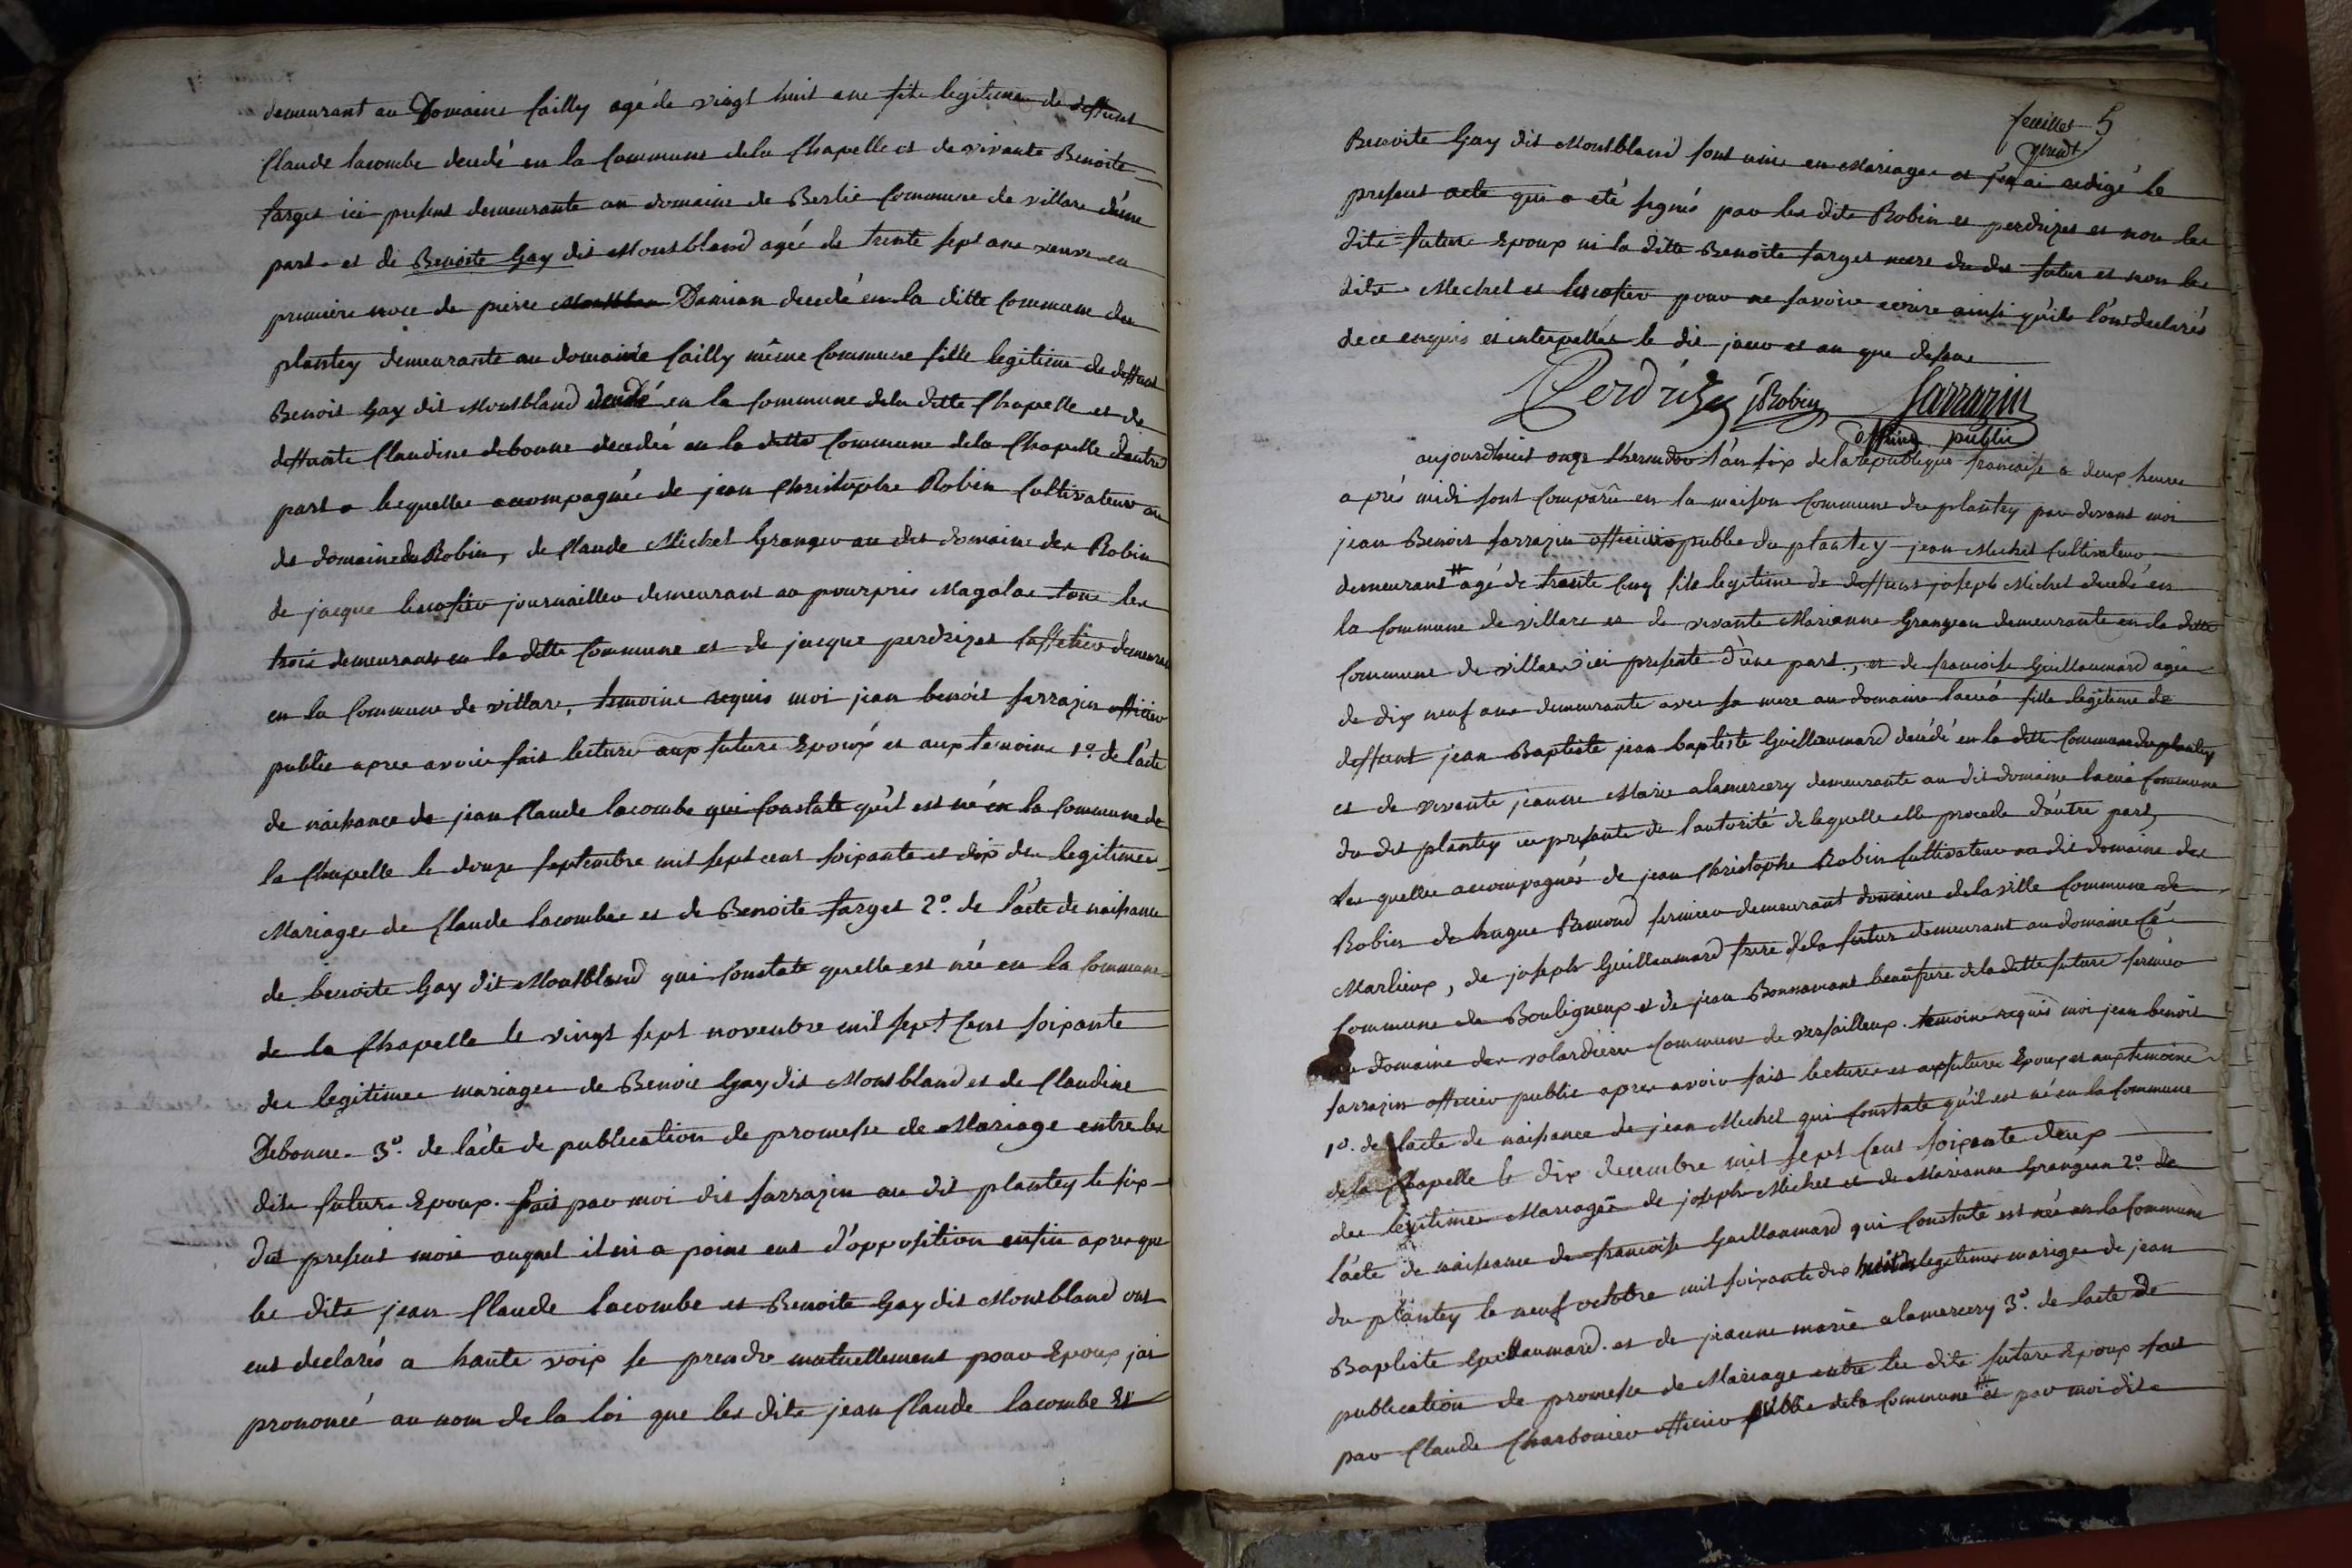 demeurant au Domaine Cailly agé de vingt huit ans fils legitime de deffunt
Claude lacombe decedé en la Commune dela Chapelle et de vivante Benoite
farges ici present demeurante au domaine de Berlie Commune de villars d'une
part. et de Benoite Gay dit Montbland agée de trente sept ans veuve en
premiere noce de pierre Damian decedé en la ditte Commune du
plantey demeurante au domaine Cailly même Commune fille legitime de deffunt
Benoit Gay dit Montbland decedé en la Commune dela ditte Chapelle et de
deffunte Claudine debonne decedée en la ditte Commune dela Chapelle d'autre
part. lesquelles accompagné de jean Christophe Robin Cultivateur au
dit domaine des Robin, de Claude Michel Granger au dit domaine des Robin
de jacque lescofier journaillier demeurant au pourpris Magalas tous les
trois demeurants en la ditte Commune et de jacque perdrizet Caffetier demeurant
en la Commune de villars, temoins requis moi jean benoit sarrazin officier
public apres avoir fait lecture aux future Epoux et aux temoins 1º. de l'acte
de naissance de jean Claude lacombe qui Constate qu'il est né en la Commune de
la Chapelle le douze septembre mil sept cent soixante et dix du legitime
Mariage de Claude lacombe et de Benoite farges 2º. de l'acte de naissance
de benoite Gay dit Montbland qui Constate quelle est née en la Commune
de la Chapelle le vingt sept novembre mil sept Cent soixante
du legitime mariage de Benoit Gay dit Montbland et de Claudine
Debonne. 3º. de l'acte de publication de promesse de Mariage entre les
dits future Epoux. fait par moi dit sarrazin au dit plantey le six
du present mois auquel il ni a point eut d'opposition enfin apres que
les dits jean Claude lacombe et Benoite Gay dit Montbland ont
eut declarés a haute voix se prendre mutuellement pour Epoux jai
prononcé au nom de la loi que les dits jean Claude lacombe Et
feuillet 5
Benoite Gay dit Montbland sont unis en Mariage et j'en ai redigé le
present acte qui a eté signés par les dits Robin et perdrizet et non les
dits future Epoux ni la ditte Benoite farges mere du dit futur et non les
dits Michel et lescofier pour ne savoir ecrire ainsi qu'ils l'ont declarés
de ce enquis et interpellés le dit jour et an que dessus
Perdrizet jRobin Sarrazin
officier public
aujourdhuit onze thermidor l'an six dela republique francaise a deux heures
aprés midi sont Comparû en la maison Commune du plantey par devant moi
jean Benoit sarrazin officier public du plantey jean Michel Cultivateur
demeurant # agé de trante Cinq fils legitime de deffunt joseph Michel decedé en
la Commune de villars et de vivante Marianne Grangean demeurante en la ditte
Commune de villars ici presente d'une part, et de francoise Guillaumard agée
de dix neuf ans demeurante avec sa mere au domaine lacua fille legitime de
deffunt jean Baptiste jean baptiste Guillaumard decédé en la ditte Commune du plantey
et de vivante jeanne Marie alamercery demeurante au dit domaine lacua Commune
du dit plantey ici presente de l'autorité de laquelle elle procede d'autre part,
les quelles accompagnés de jean Christophe Robin Cultivateur au dit domaine des
Robin de hugue Ramond fermier demeurant domaine dela ville Commune de
Marlieux, de joseph Guillaumard frere dela future demeurant au domaine
Commune de Bouligneux et de jean Bonnamant beaufrere dela ditte future fermier
au domaine des volardiere Commune de versailleux. temoins requis moi jean benoit
sarrazin officier public apres avoir fait lecture et aux future Epoux et aux temoins
1º. de l'acte de naissance de jean Michel qui Constate qu'il est né en la Commune
dela Chapelle le dix decembre mil sept Cent soixante deux
du legitime Mariage de joseph Michel et de Marianne Grangean 2º. de
l'acte de naissance de francoise Guillaumard qui Constate est née en la Commune
du plantey le neuf octobre mil soixante dix huit du legitime mariage de jean
Baptiste Guillaumard. et de jeanne marie alamercery 3º. de l'acte de
publication de promesse de Mariage entre les dits future Epoux fait
par Claude Charbonier officier public dela Commune # et par moi dit